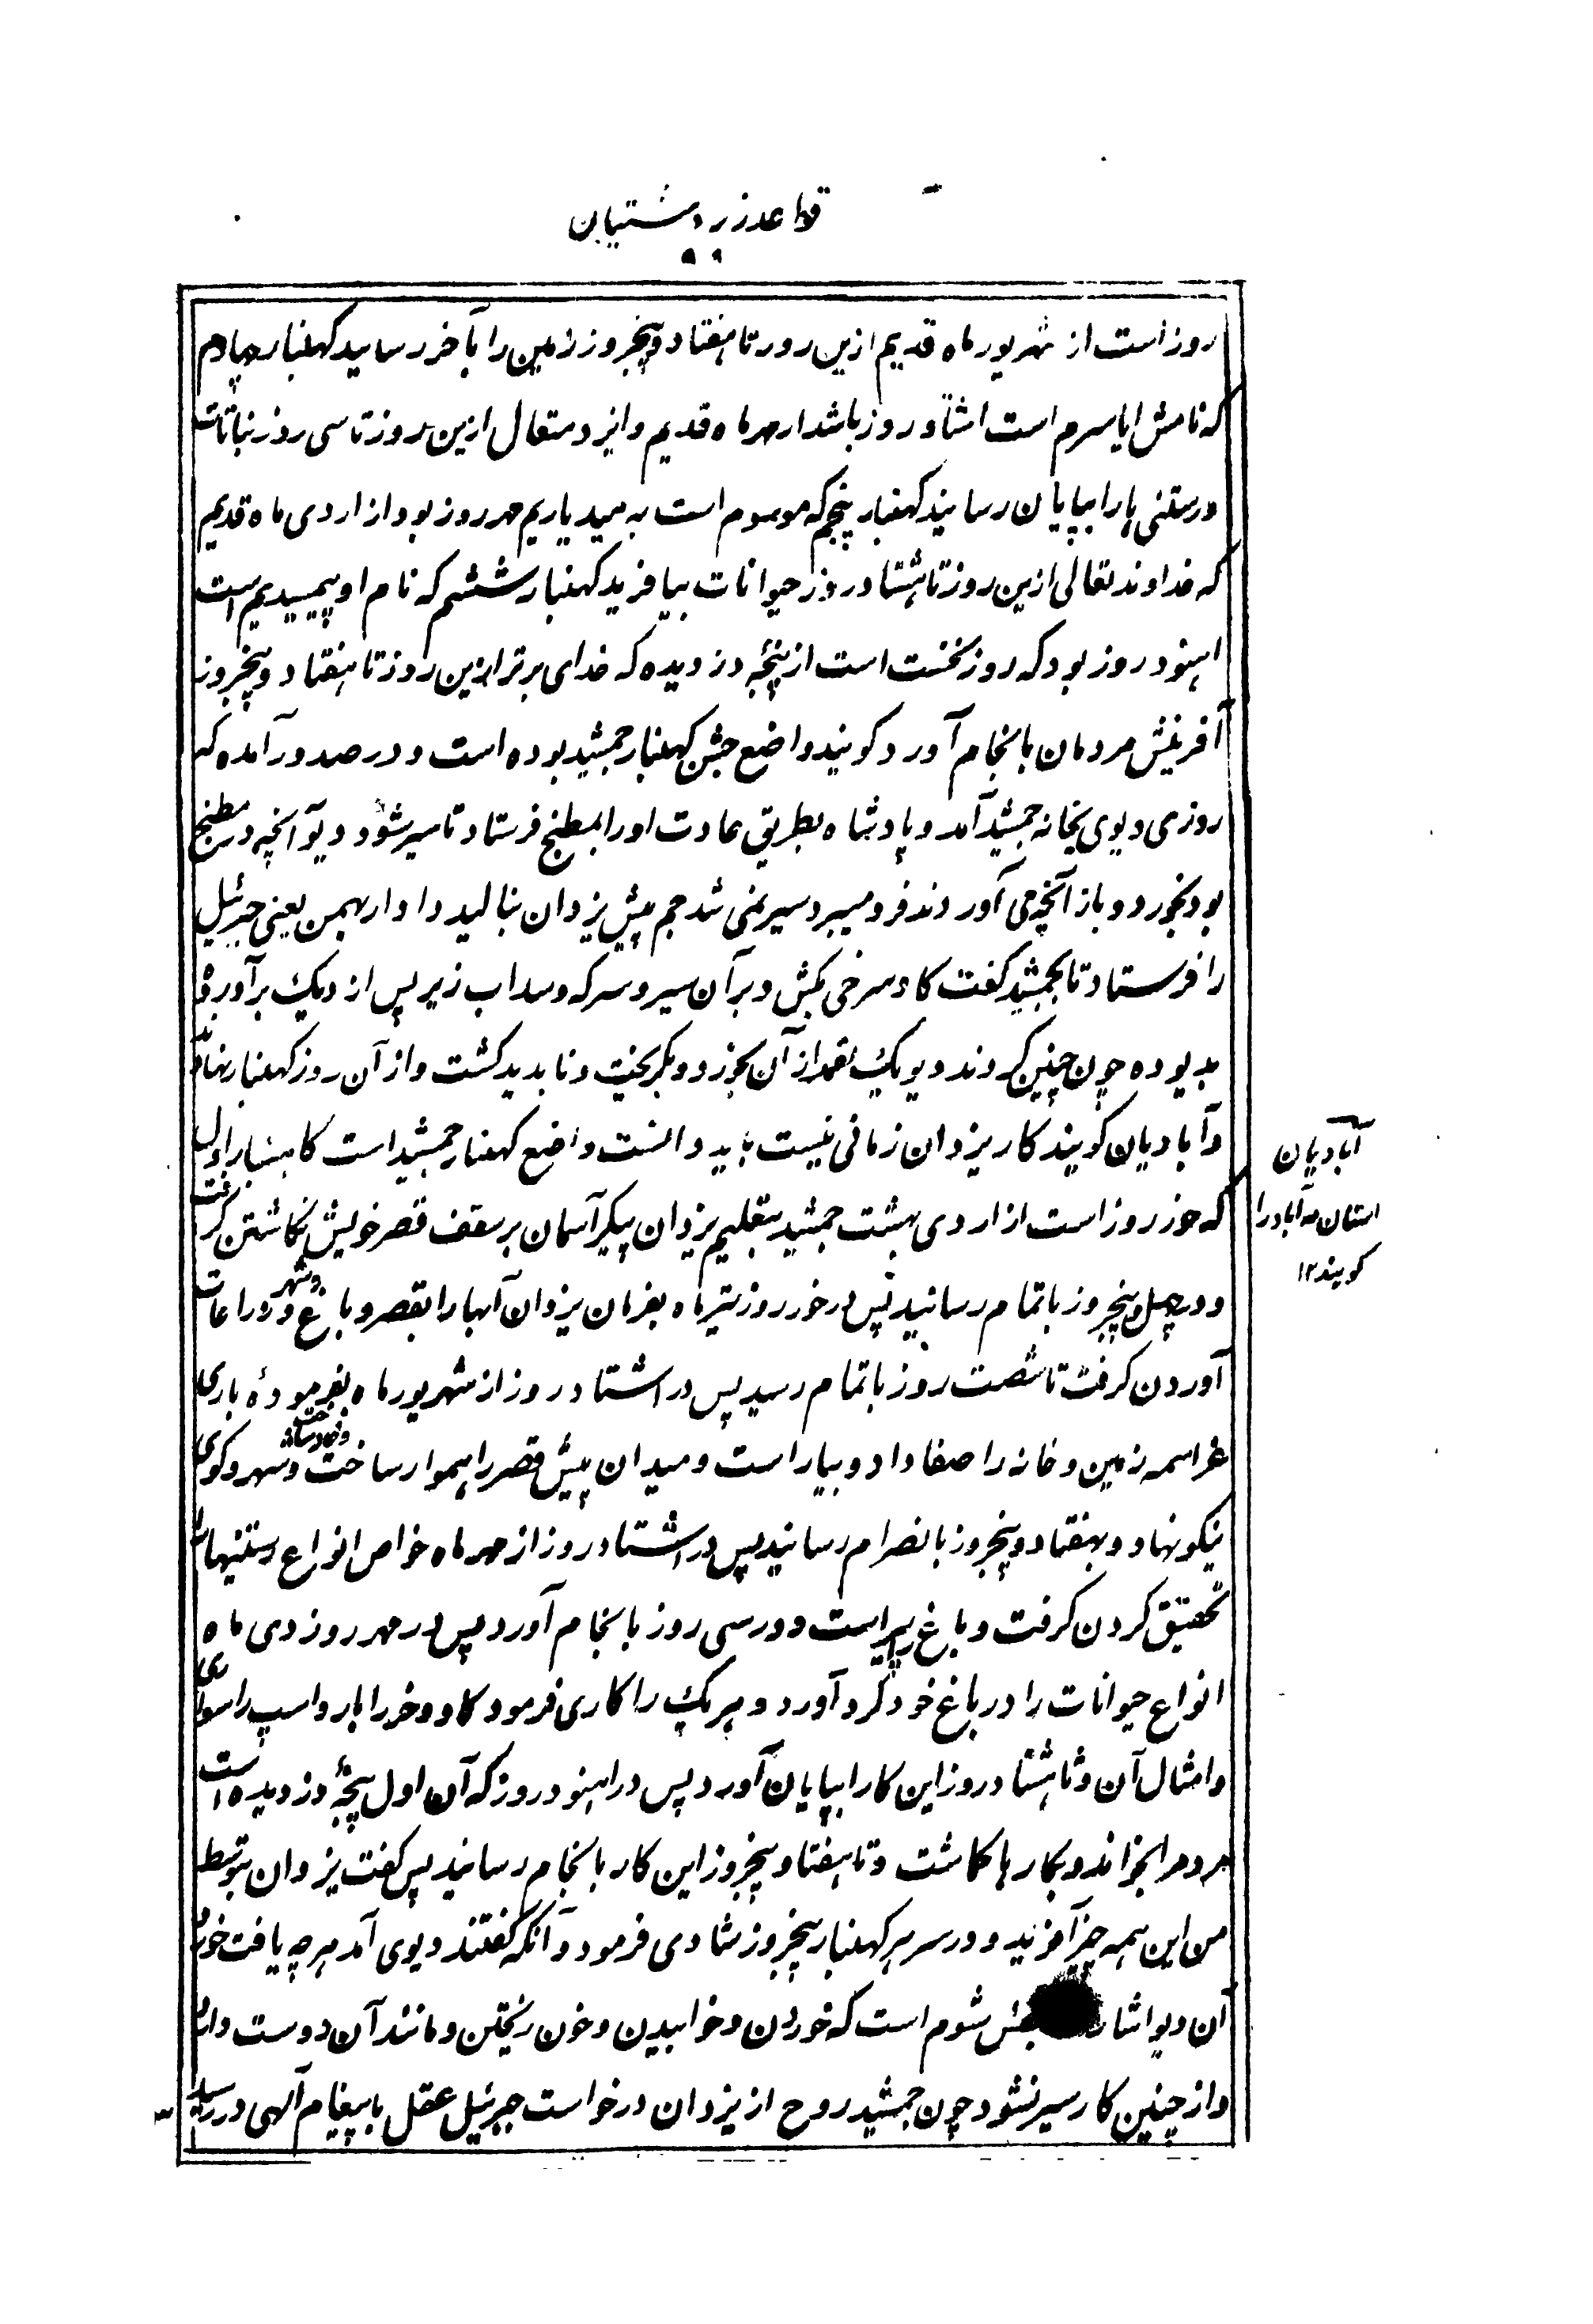 قواعد زردشتیان
۹۹
روز است از شهریور ماه قدیم ازین روز تا هفتاد و پنجروز زمین را بآخر رسانید کهنبار چهارم
که نامش ایاسرم است اشتاد روز باشد از مهر ماه قدیم و ایزد متعال ازین روز تا سی روز نباتات
و رستنی ها را بپایان رسانید کهنبار پنجم که موسوم است به میدیاریم مهر روز بود از اردی ماه قدیم
که خداوند تعالی ازین روز تا هشتاد روز حیوانات بیافرید کهنبار ششم که نام او همسپدیم است
اهنود روز بود که روز نخست است از پنجهٔ دزدیده که خدای برتر ازین روز تا هفتاد و پنجروز
آفرینش مردمان بانجام آورد کویند واضع جشن کهنبار جمشید بوده است و در صد در آمده که
روزی دیوی بخانه جمشید آمد و پادشاه بطریق عادت اورا بمطبخ فرستاد تا سیر شود دیو آنچه در مطبخ
بود بخورد و باز آنچه می آوردند فرو میبرد و سیر نمی شد جم پیش یزدان بنالید دادار بهمن یعنی جبرئیل
را فرستاد تا بجمشید کفت کاو سرخی بکش و بر آن سیر و سرکه و سداب زیر پس از دیک برآورده
بدیو ده چون چنین کردند دیو یک لقمه از آن بخورد و بکریخت و ناپدید کشت و از آن روز کهنبار نهاد
وآبادیان کویند کار یزدان زمانی نیست باید دانست واضع کهنبار جمشید است کاهنبار اول
که خور روز است از اردی بهشت جمشید بتعلیم یزدان پیکر آسمان بر سقف قصر خویش نکاشتن کرفت
و در چهل و پنجروز باتمام رسانید پس در خور روز تیر ماه بفرمان یزدان آبها را بقصر و باغ و شهر و زراعات
آوردن کرفت تا شصت روز باتمام رسید پس در اشتاد روز از شهریور ماه بفرمودهٔ باری
عز اسمه زمین و خانه را صفا داد و بیاراست و میدان پیش قصر را هموار ساخت و شهر و کوی
نیکو نهاد و بهفتاد و پنجروز بانصرام رسانید پس در اشتاد روز از مهر ماه خواص انواع رستنیها را
تحقیق کردن کرفت و باغ پیراست و در سی روز بانجام آورد پس در مهر روز دی ماه
انواع حیوانات را در باغ خود کرد آورد و هر یک را کاری فرمود کاو و خر را بار و اسپ را سواری
و امثال آن و تا هشتاد روز این کار را بپایان آورد پس در اهنود روز که آن اول پنجهٔ دزدیده است
مردم را بخواند و بکارها کماشت و تا هفتاد و پنجروز این کار بانجام رسانید پس کفت یزدان بتوسط
من این همه چیز آفرید و در سر هر کهنبار پنجروز شادی فرمود و آنکه کفتند دیوی آمد هر چه یافت خورد
آن دیو اشار بخش شوم است که خوردن و خوابیدن و خون ریختن و مانند آن دوست دارد
و از چنین کار سیر نشود چون جمشید روح از یزدان درخواست جبرئیل عقل با پیغام آلهی در رسید
آبادیان
امتان مه آباد را
کویند ۱۲